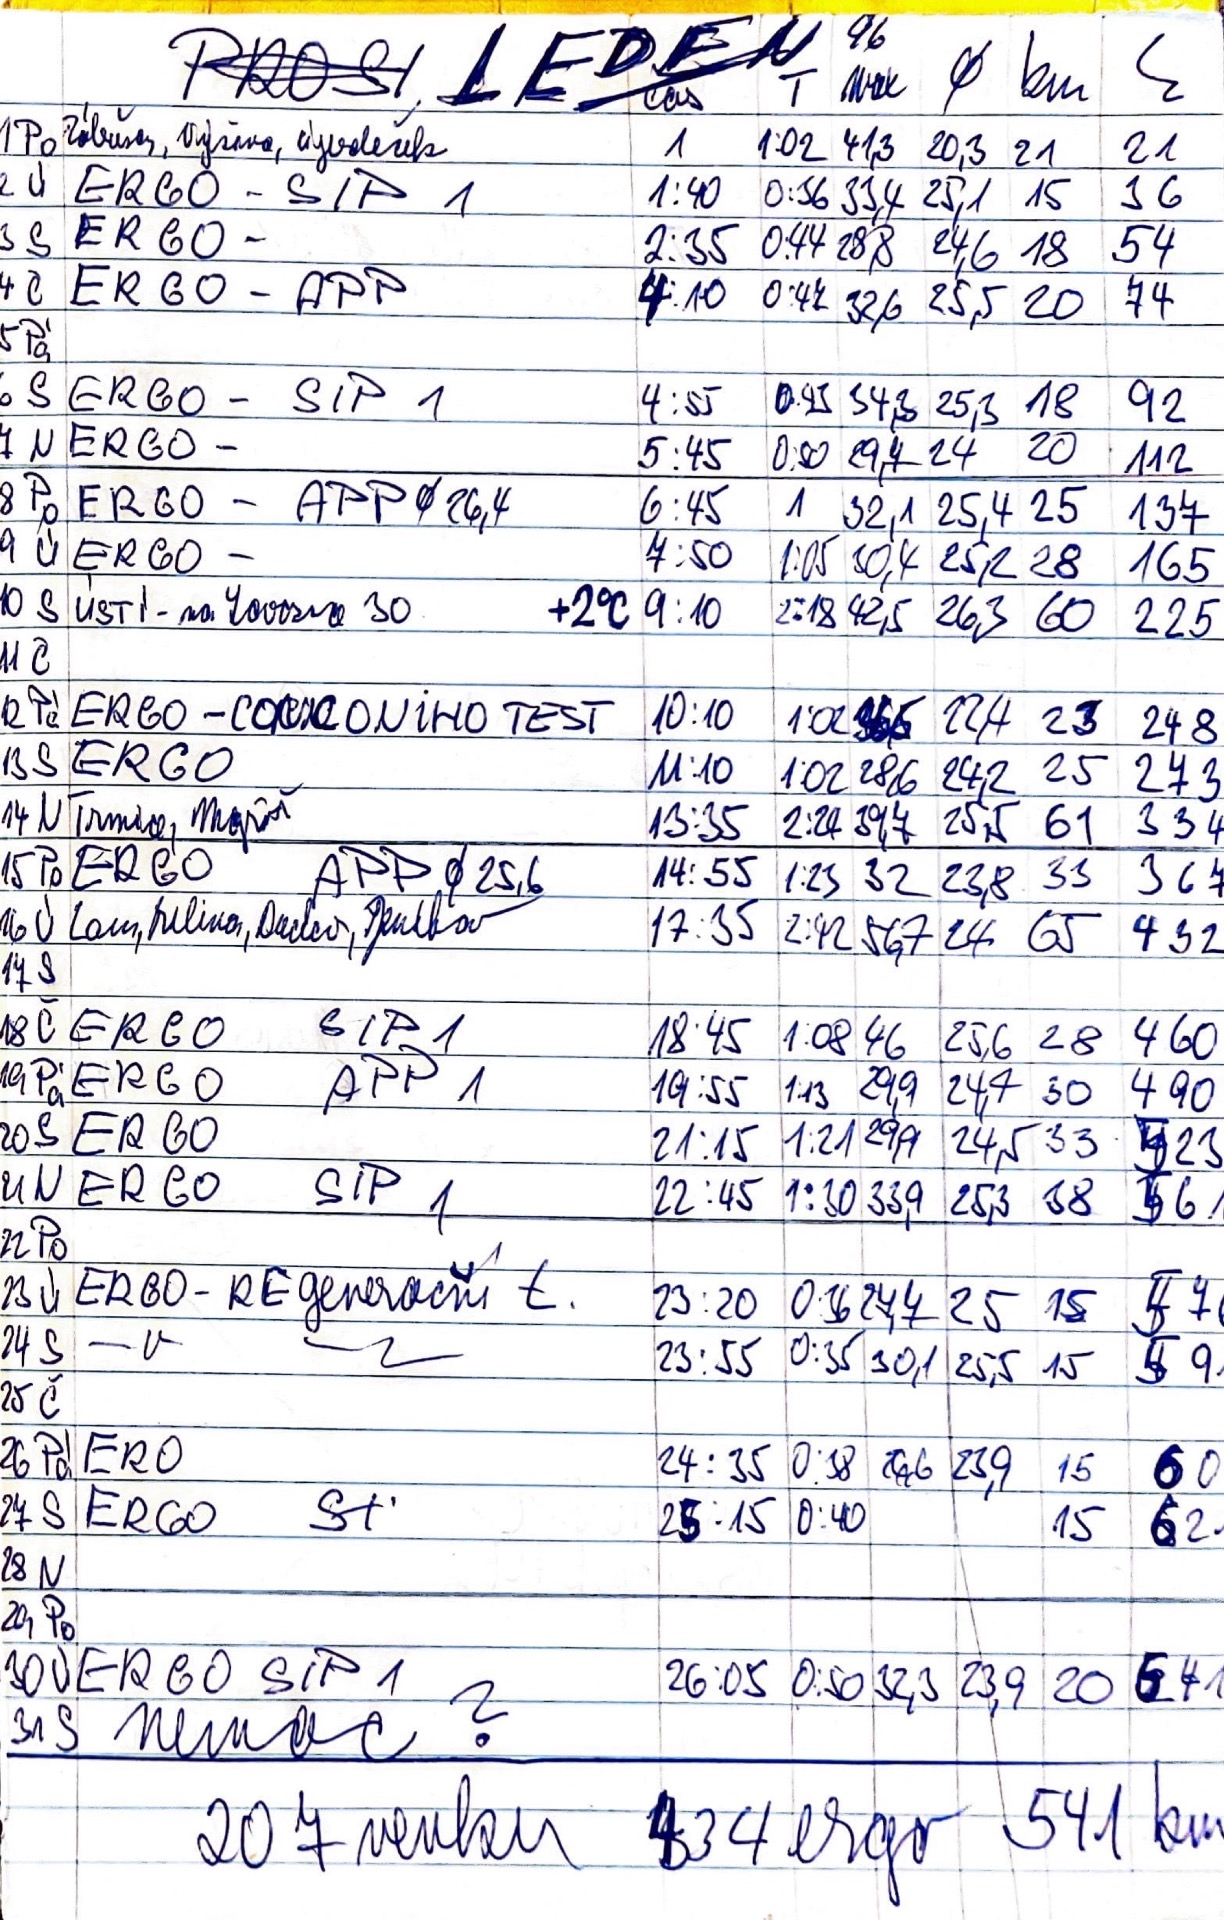 PROSI, LEDEN 96
čas T Max ø km Σ
1 Po Výšina, 1 1:02 41,3 20,3 21 21
2 Ú ERGO - SIP 1 1:40 0:36 33,4 25,1 15 36
3 S ERGO - 2:35 0:44 28,8 24,6 18 54
4 Č ERGO - APP 4:10 0:47 32,6 25,5 20 74
5 Pá
6 S ERGO - SIP 1 4:55 0:43 34,3 25,3 18 92
7 N ERGO - 5:45 0:50 29,7 24 20 112
8 Po ERGO - APP ø 26,4 6:45 1 32,1 25,4 25 137
9 Ú ERGO - 7:50 1:05 30,4 25,2 28 165
10 S ÚSTÍ - na 30 +2°C 9:10 2:18 42,5 26,3 60 225
11 Č
12 Pá ERGO - TEST 10:10 1:02 22,4 23 248
13 S ERGO 11:10 1:02 28,6 24,2 25 273
14 N 13:35 2:24 39,7 25,5 61 334
15 Po ERGO APP ø 25,6 14:55 1:23 32 23,8 33 367
16 Ú 17:35 2:42 56,7 24 65 432
17 S
18 Č ERGO SIP 1 18:45 1:08 46 25,6 28 460
19 Pá ERGO APP 1 19:55 1:13 29,9 24,7 30 490
20 S ERGO 21:15 1:21 29,9 24,5 33 523
21 N ERGO SIP 1 22:45 1:30 33,9 25,3 38 561
22 Po
23 Ú ERGO - REgenerační t. 23:20 0:36 27,7 25 15 576
24 S — v — 23:55 0:35 30,1 25,5 15 591
25 Č
26 Pá ERO 24:35 0:38 23,9 15 60
27 S ERGO St' 25:15 0:40 15 62
28 N
29 Po
30 Ú ERGO SIP 1 26:05 0:50 32,3 23,9 20 641
31 S nemoc ?
207 venku 434 ergo 541 km